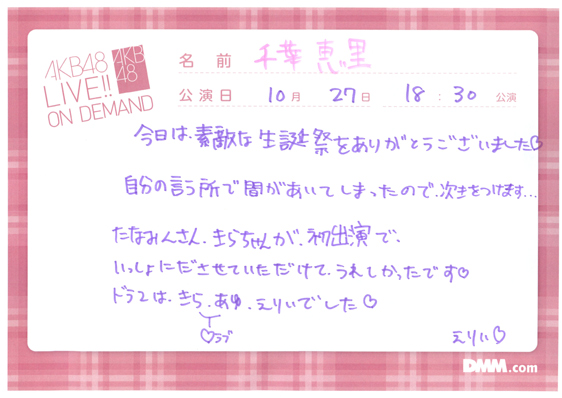 AKB48
LIVE!!
ON DEMAND
AKB
48
名前 千葉恵里
公演日 10月 27日 18:30 公演
今日は、素敵な生誕祭をありがとうございました♡
自分の言う所で間があいてしまったので、次きをつけます...
たなみんさん、きらちゃんが、初出演で、
いっしょにださせていただけて、うれしかったです♡
ドラ2は、きら、あゆ、えりいでした♡
♡ラブ
えりい♡
DMM.com